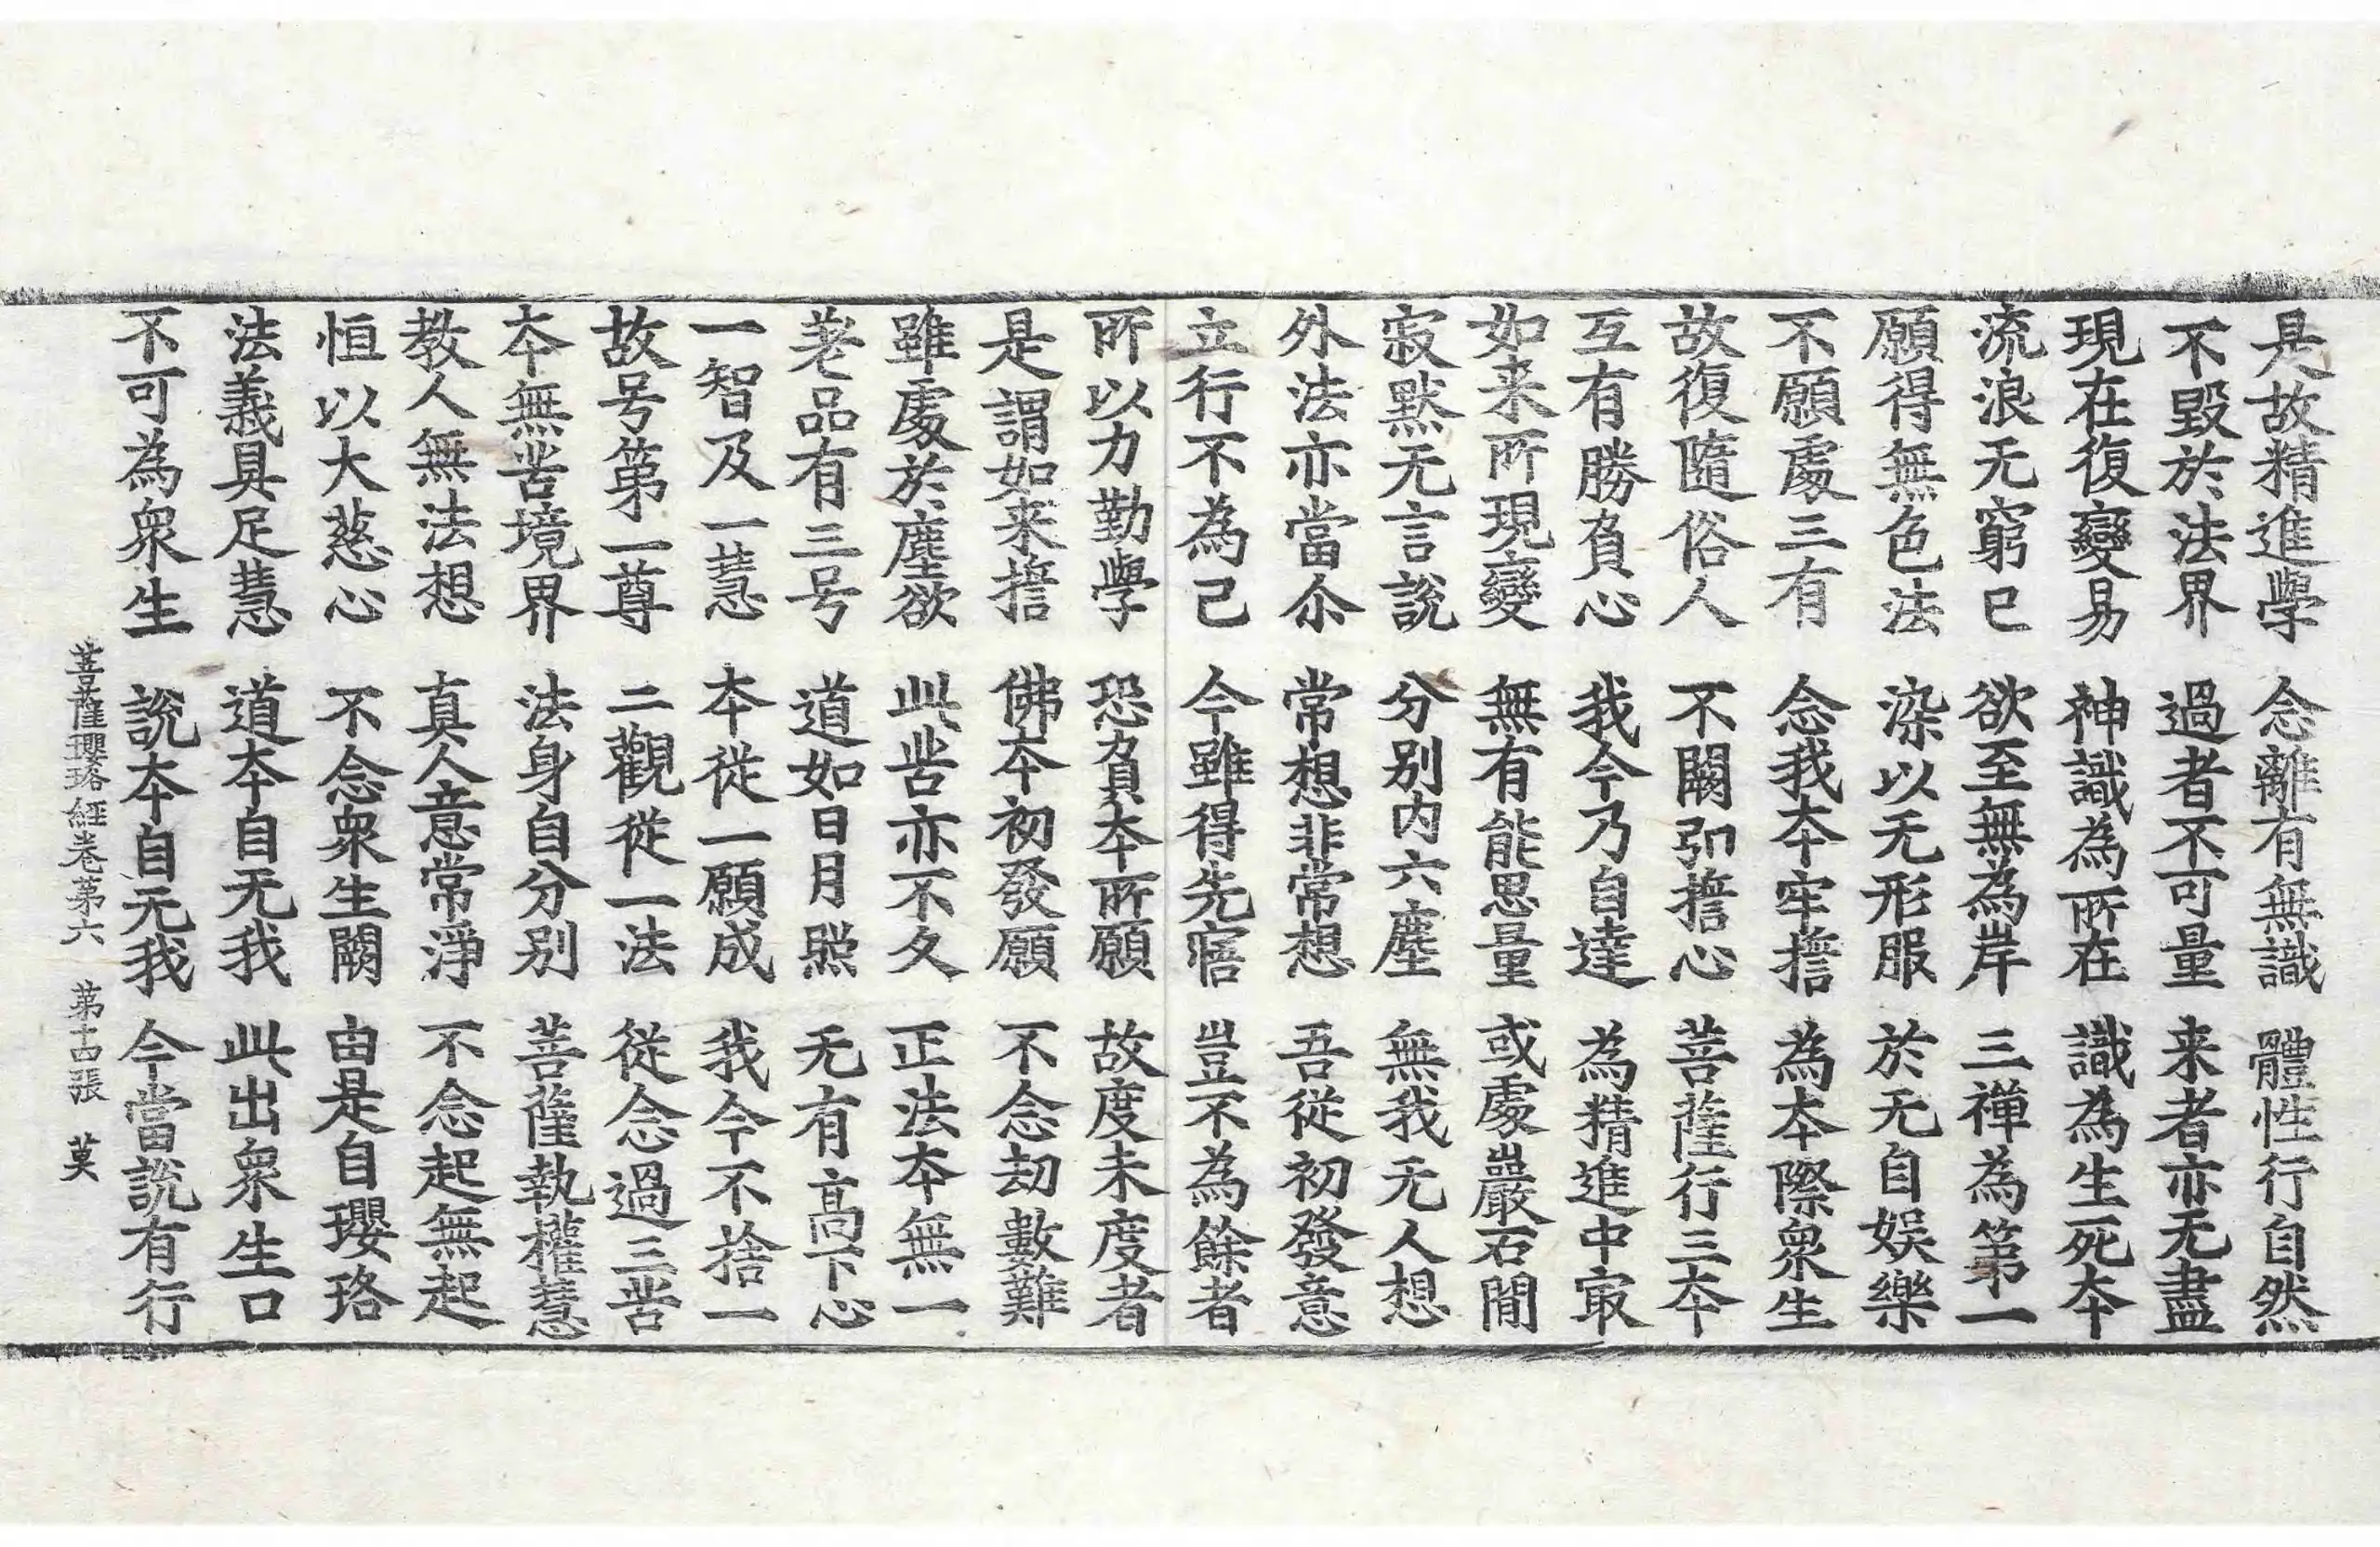 是故精進學　念離有無識　體性行自然
不毀於法界　過者不可量　来者亦无盡
現在復變易　神識為所在　識為生死夲
流浪无窮已　欲至無為岸　三禪為第一
願得無色法　染以无形服　於无自娛樂
不願處三有　念我夲牢擔　為夲際衆生
故復隨俗人　不闕弘擔心　菩薩行三夲
互有勝負心　我今乃自達　為精進中㝡
如来所現變　無有能思量　或處巖石間
寂默无言說　分別内六塵　無我无人想
外法亦當尒　常想非常想　吾從初發意
立行不為己　今雖得先寤　豈不為餘者
所以力勤學　恐負夲所願　故度未度者
是謂如来擔　佛夲初發願　不念劫數難
雖處於塵欲　此苦亦不久　正法夲無一
差品有三号　道如日月照　无有高下心
一智及一慧　夲從一願成　我今不捨一
故号第一尊　二觀從一法　從念過三苦
夲無苦境界　法身自分別　菩薩執權慧
教人無法想　真人意常淨　不念起無起
恒以大慈心　不念衆生闕　由是自瓔珞
法義具足慧　道夲自无我　此出衆生口
不可為衆生　說夲自无我　今當說有行
菩薩瓔珞經卷第六　第十四張　莫